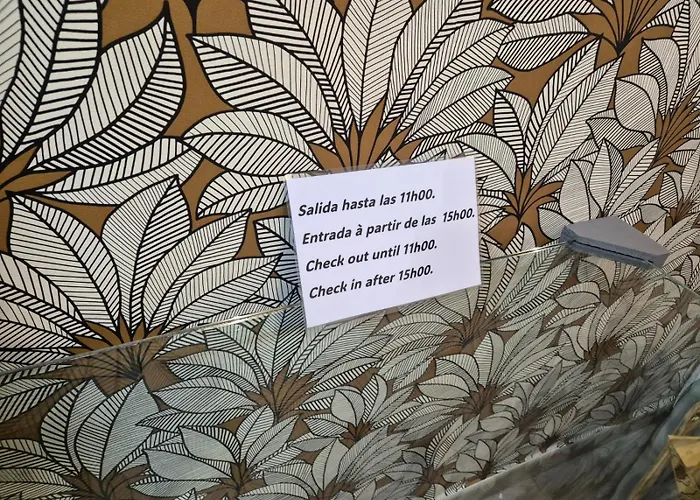 Salida hasta las 11h00.
Entrada à partir de las 15h00.
Check out until 11h00.
Check in after 15h00.